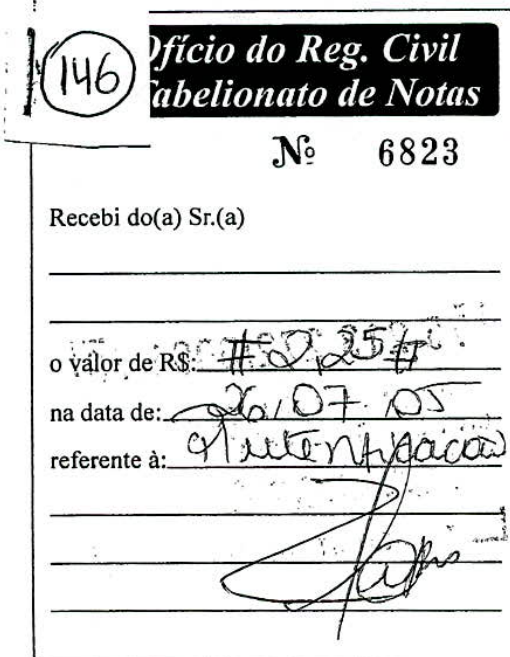 146
Ofício do Reg. Civil
Tabelionato de Notas
Nº 6823
Recebi do(a) Sr.(a)
o valor de R$: #2,25#
na data de: 26/07/05
referente à: Autentificação